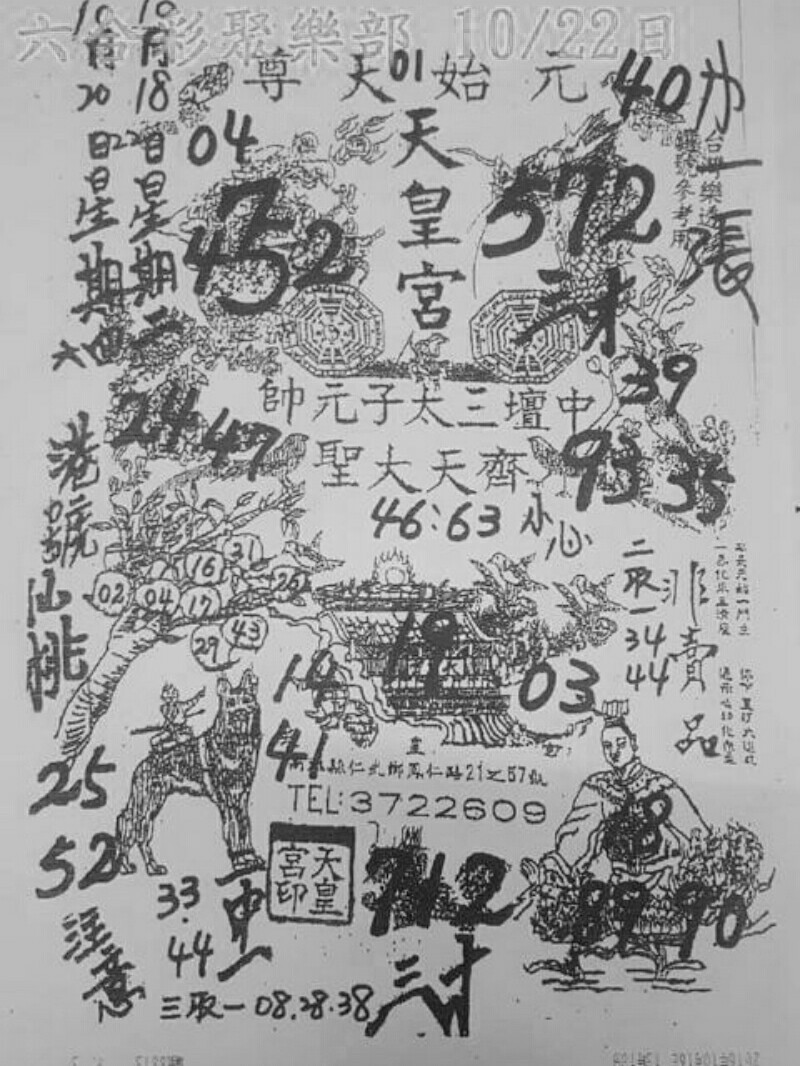 六合彩聚樂部 10/22日
10月18日星期二
10月20日星期四
22
六
元始天尊
01
40
04
天皇宮
452
7
572
三才
台灣樂透
號參考用
39
39
24 47
中壇三太子元帥
齊天大聖
93 35
46:63 小心
港號仙桃
16 31
02 04 17 26
29 43
二取一
34
44
非賣品
14
19
03
41
仁武鄉鳳仁路21之57號
TEL:3722609
25
52
注意
天皇宮印
33.
44
二中一
712
三才
三取一 08.28.38
68
89 90